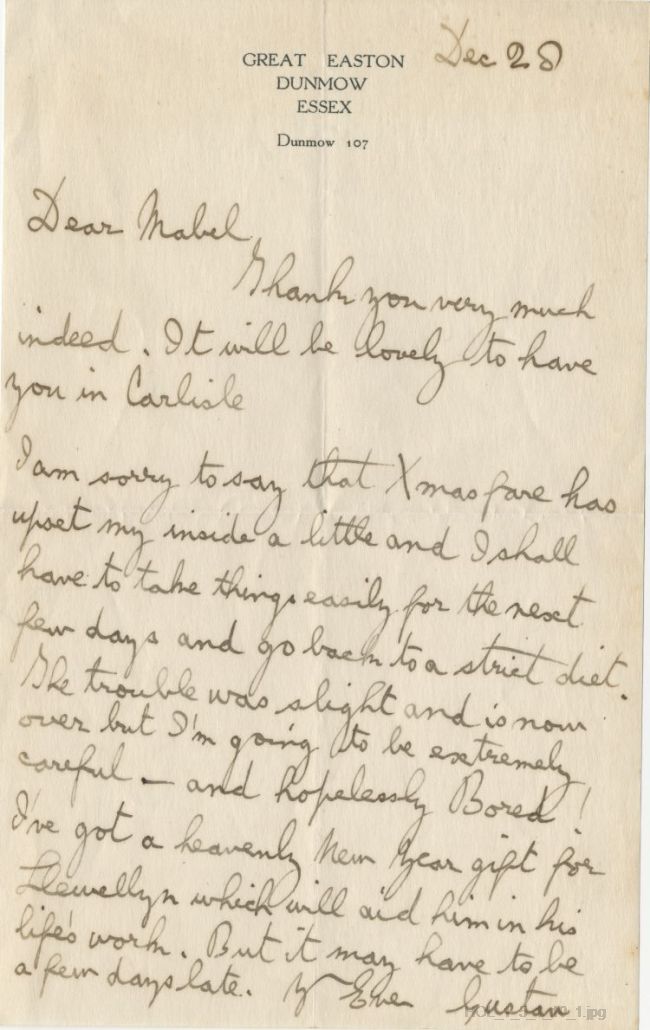 Dec 28
GREAT EASTON
DUNMOW
ESSEX
Dunmow 107
Dear Mabel,
Thank you very much
indeed. It will be lovely to have
you in Carlisle
I am sorry to say that Xmas fare has
upset my inside a little and I shall
have to take things easily for the next
few days and go back to a strict diet.
The trouble was slight and is now
over but I'm going to be extremely
careful — and hopelessly Bored!
I've got a heavenly New Year gift for
Llewellyn which will aid him in his
life's work. But it may have to be
a few days late. Yr Ever Gustav
1.jpg